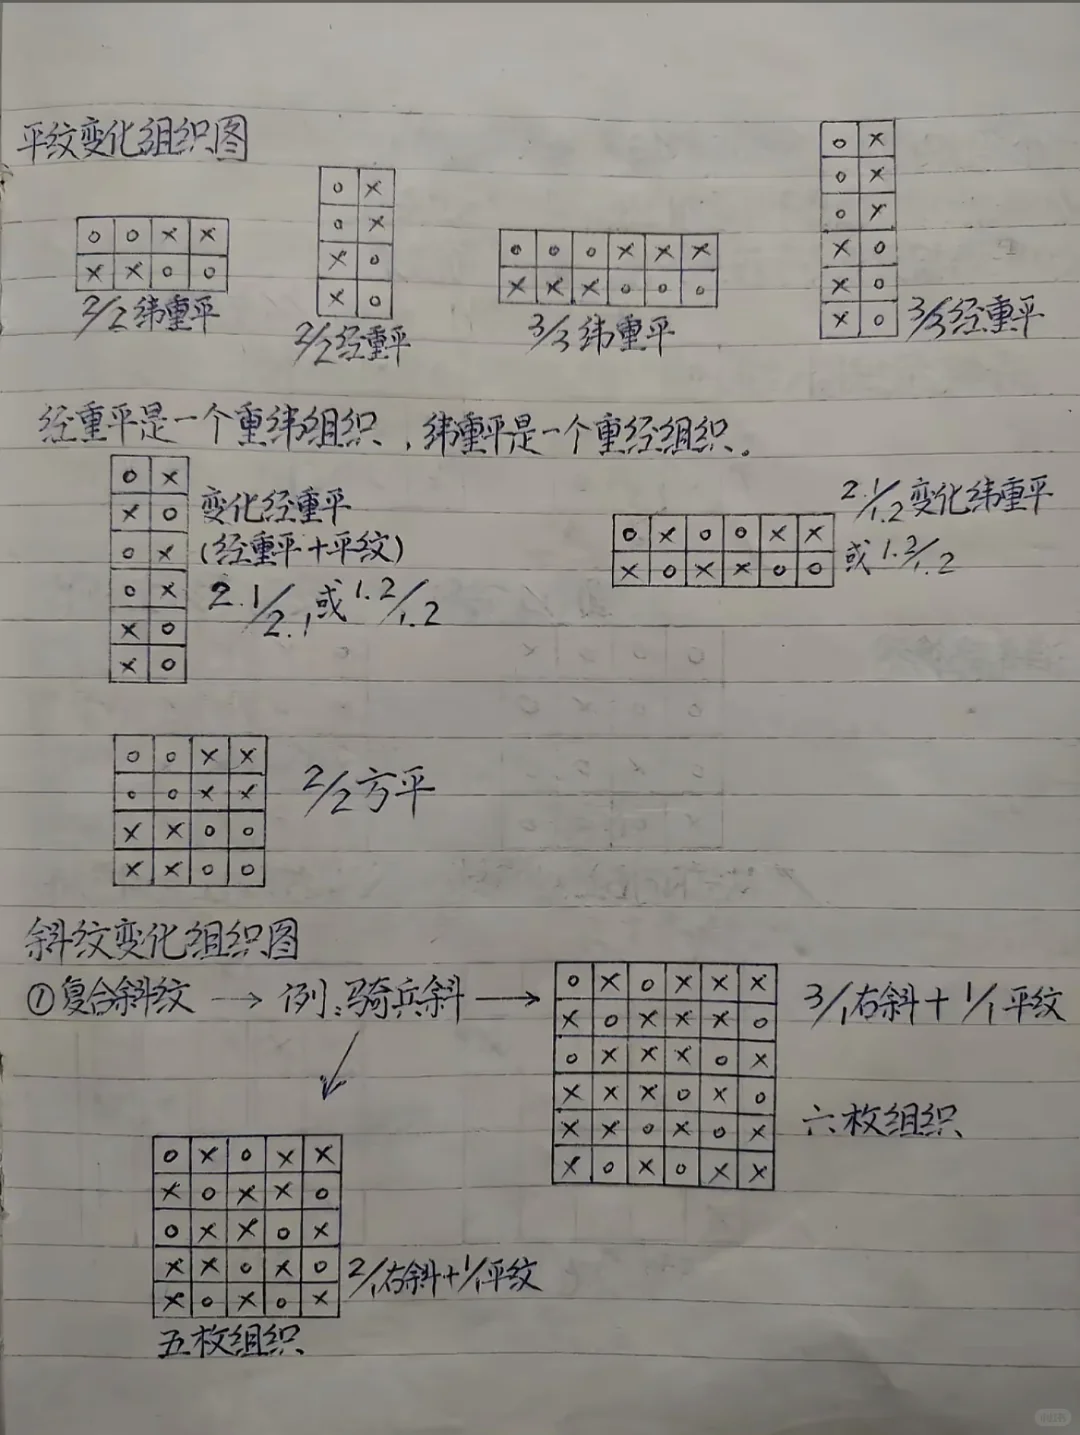 平纹变化组织图
o x
o x
x o
x o
o x
o x
o x
x o
x o
x o
o o x x
x x o o
o o o x x x
x x x o o o
2/2纬重平
2/2经重平
3/3纬重平
3/3经重平
经重平是一个重纬组织,纬重平是一个重经组织。
o x
x o
o x
o x
x o
x o
变化经重平
(经重平+平纹)
2.1/2.1或1.2/1.2
o x o o x x
x o x x o o
2.1/1.2变化纬重平
或1.2/1.2
o o x x
o o x x
x x o o
x x o o
2/2方平
斜纹变化组织图
①复合斜纹→例:骑兵斜→
o x o x x x
x o x x x o
o x x x o x
x x x o x o
x x o x o x
x o x o x x
3/1右斜+1/1平纹
六枚组织
o x o x x
x o x x o
o x x o x
x x o x o
x o x o x
2/1右斜+1/1平纹
五枚组织